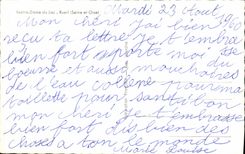 Notre-Dame du Lac, - Rueil (Seine et Oise)
Mardi 23 Aout
Mon chéri jai bien
reçu ta lettre je t'embra
bien fort aporte moi
bourse et aussi mouchoires
de l'eau collene pour ma
toilette pour santi bon
mon cheri je t'embrasse
bien fort dis bien des
choses a ton le monde
Marie Louise